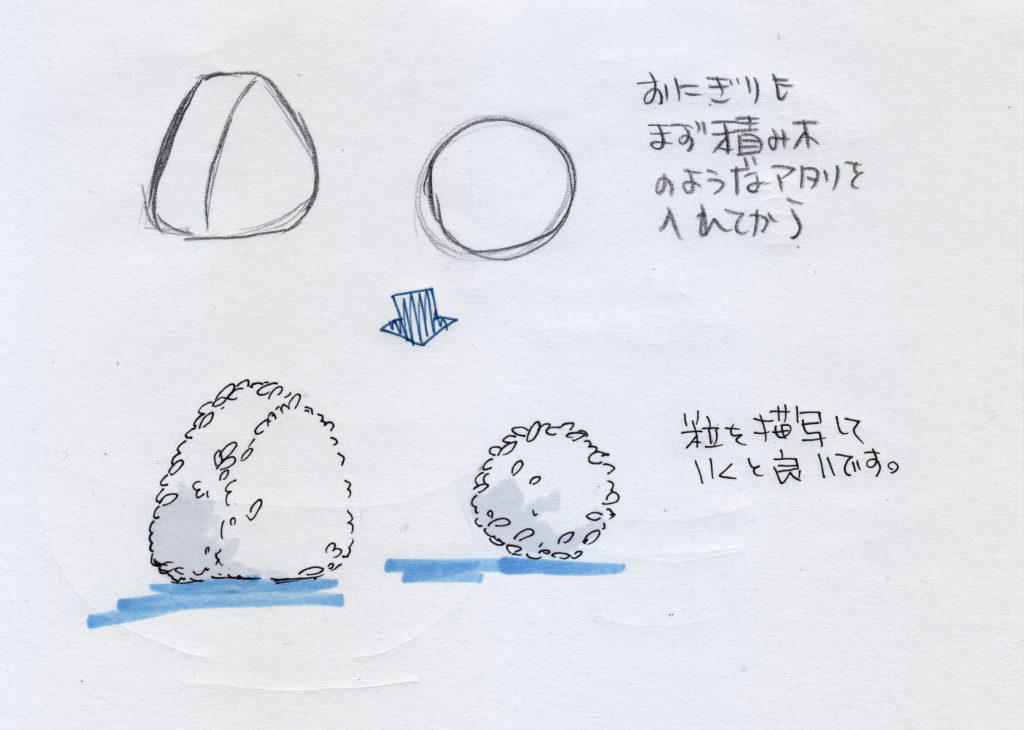 おにぎりも
まず積み木
のようなアタリを
入れてから
粒を描写して
いくと良いです。